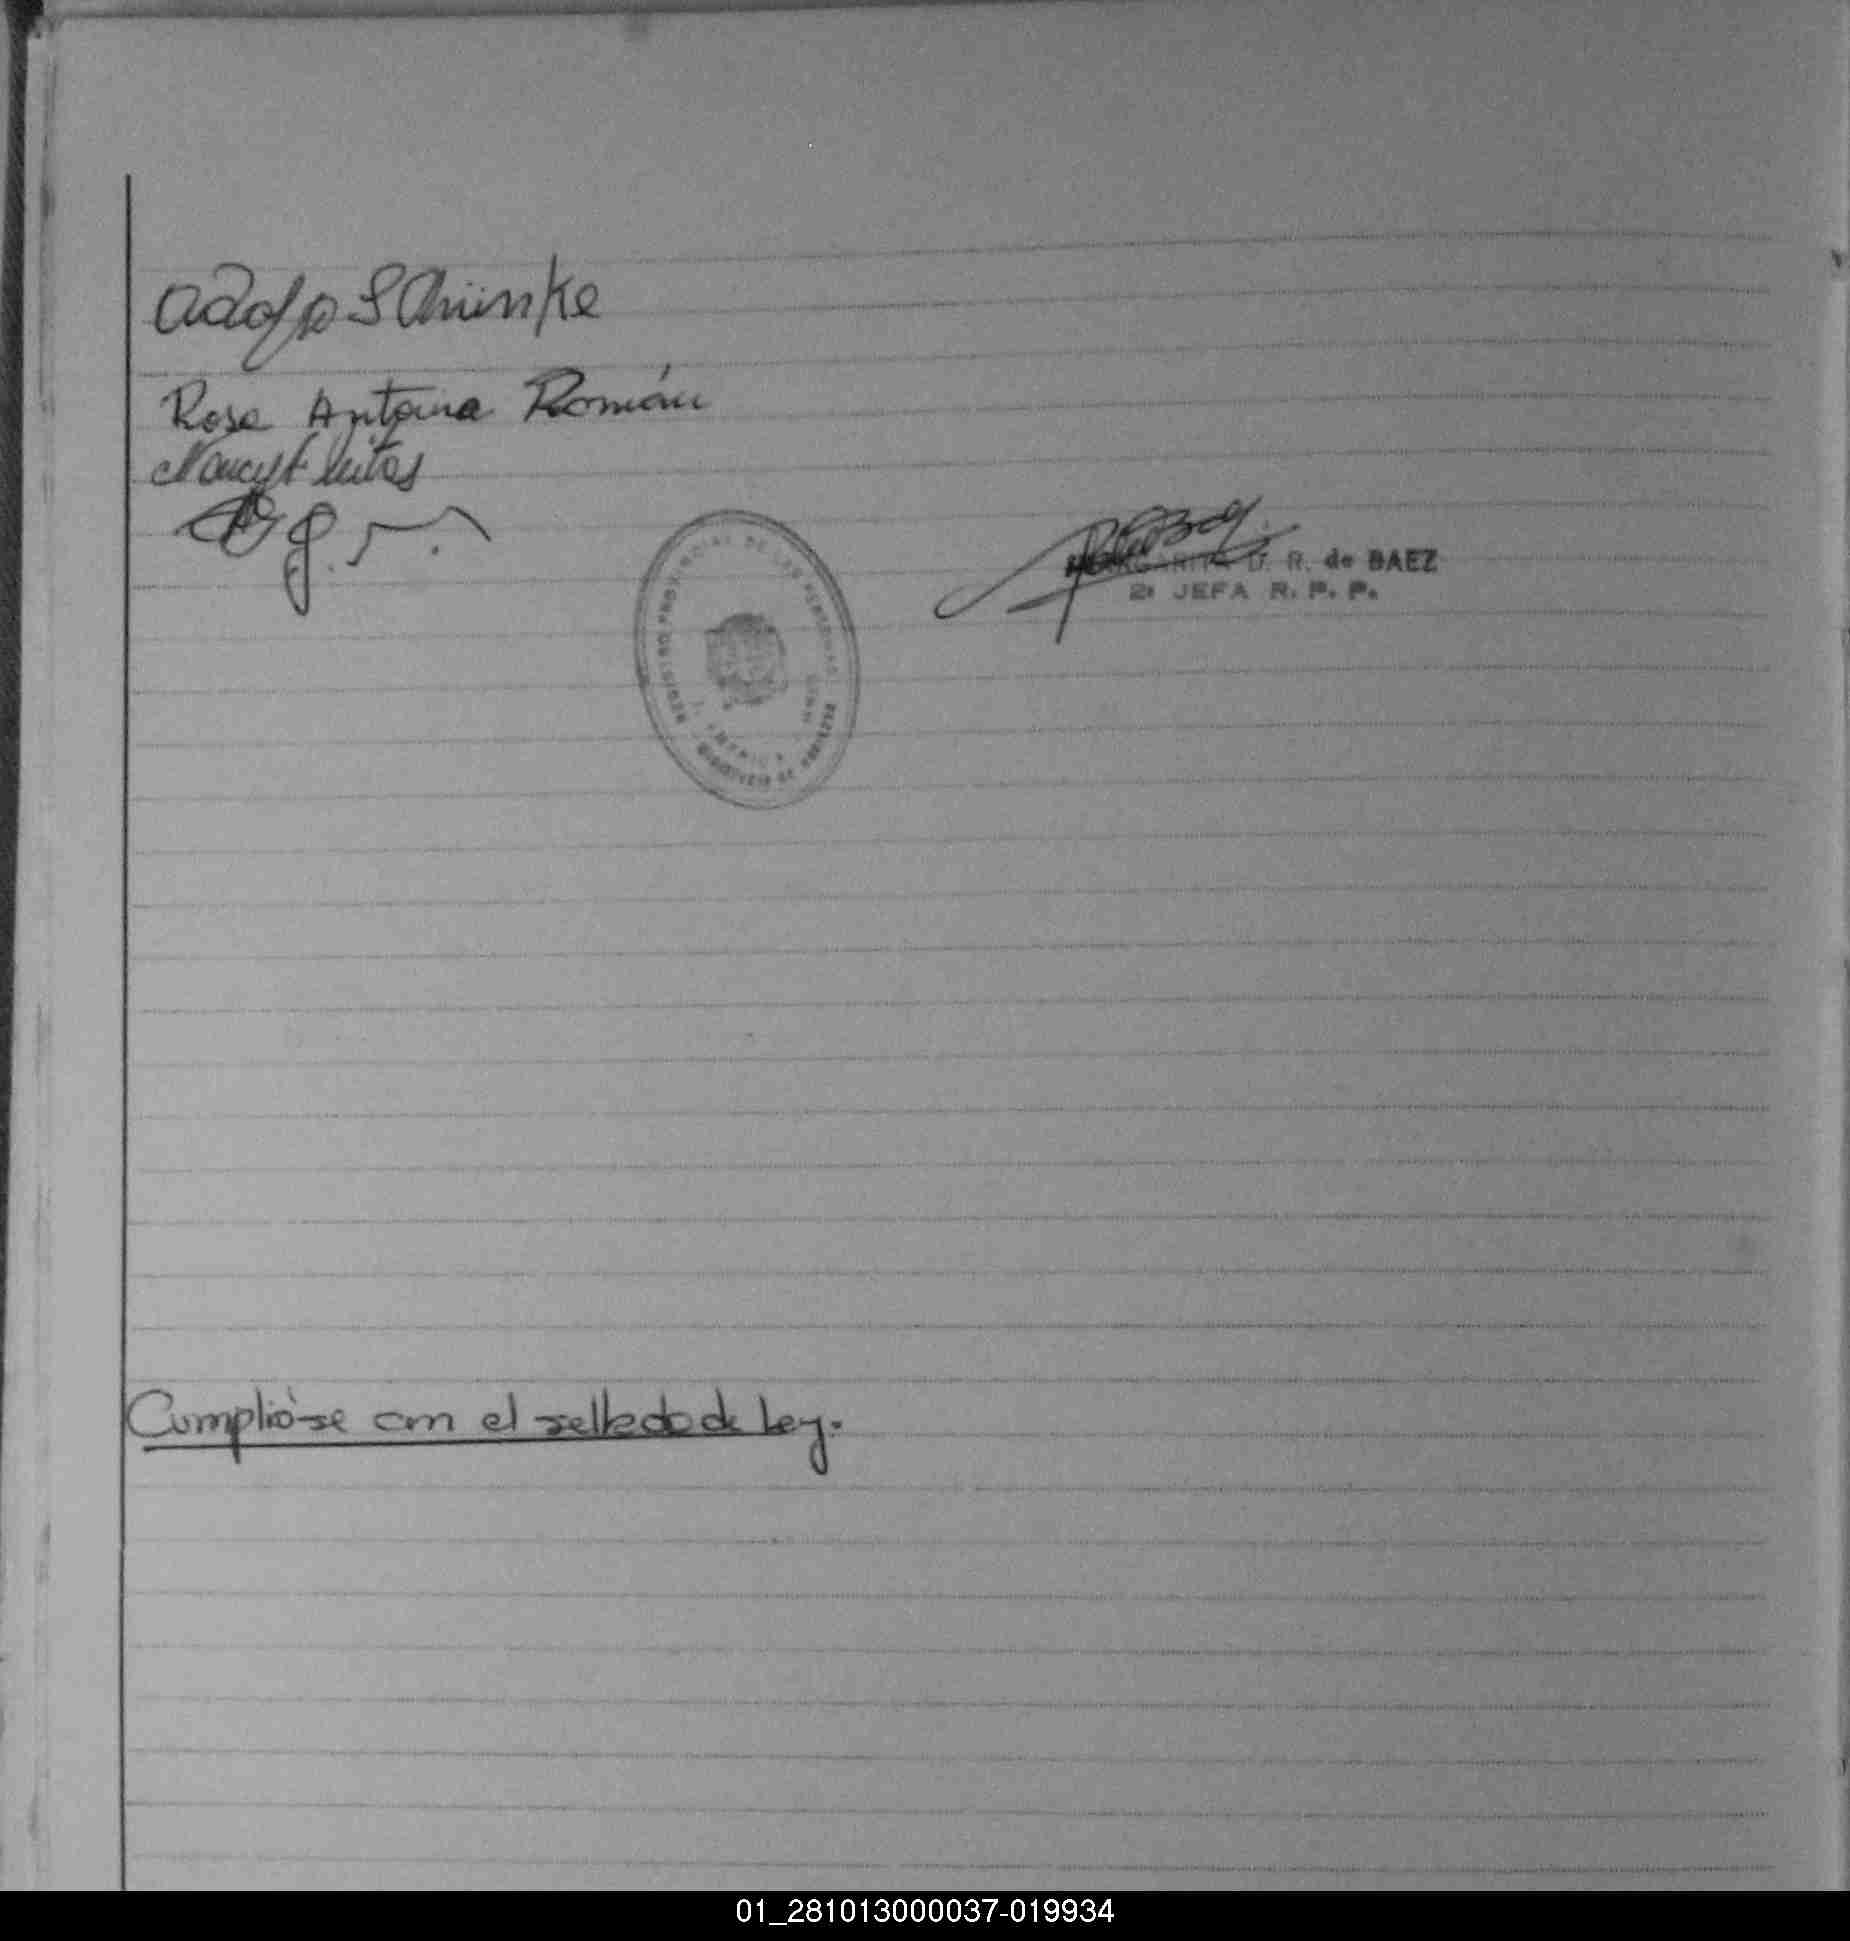 Adolfo SChünke
Rosa Antonia Román
Nancy F Leites
MARGARITA D. R. de BAEZ
2ª JEFA R. P. P.
REGISTRO PROVINCIAL DE LAS PERSONAS
Cumplió-se con el sellado de Ley.
01_281013000037-019934